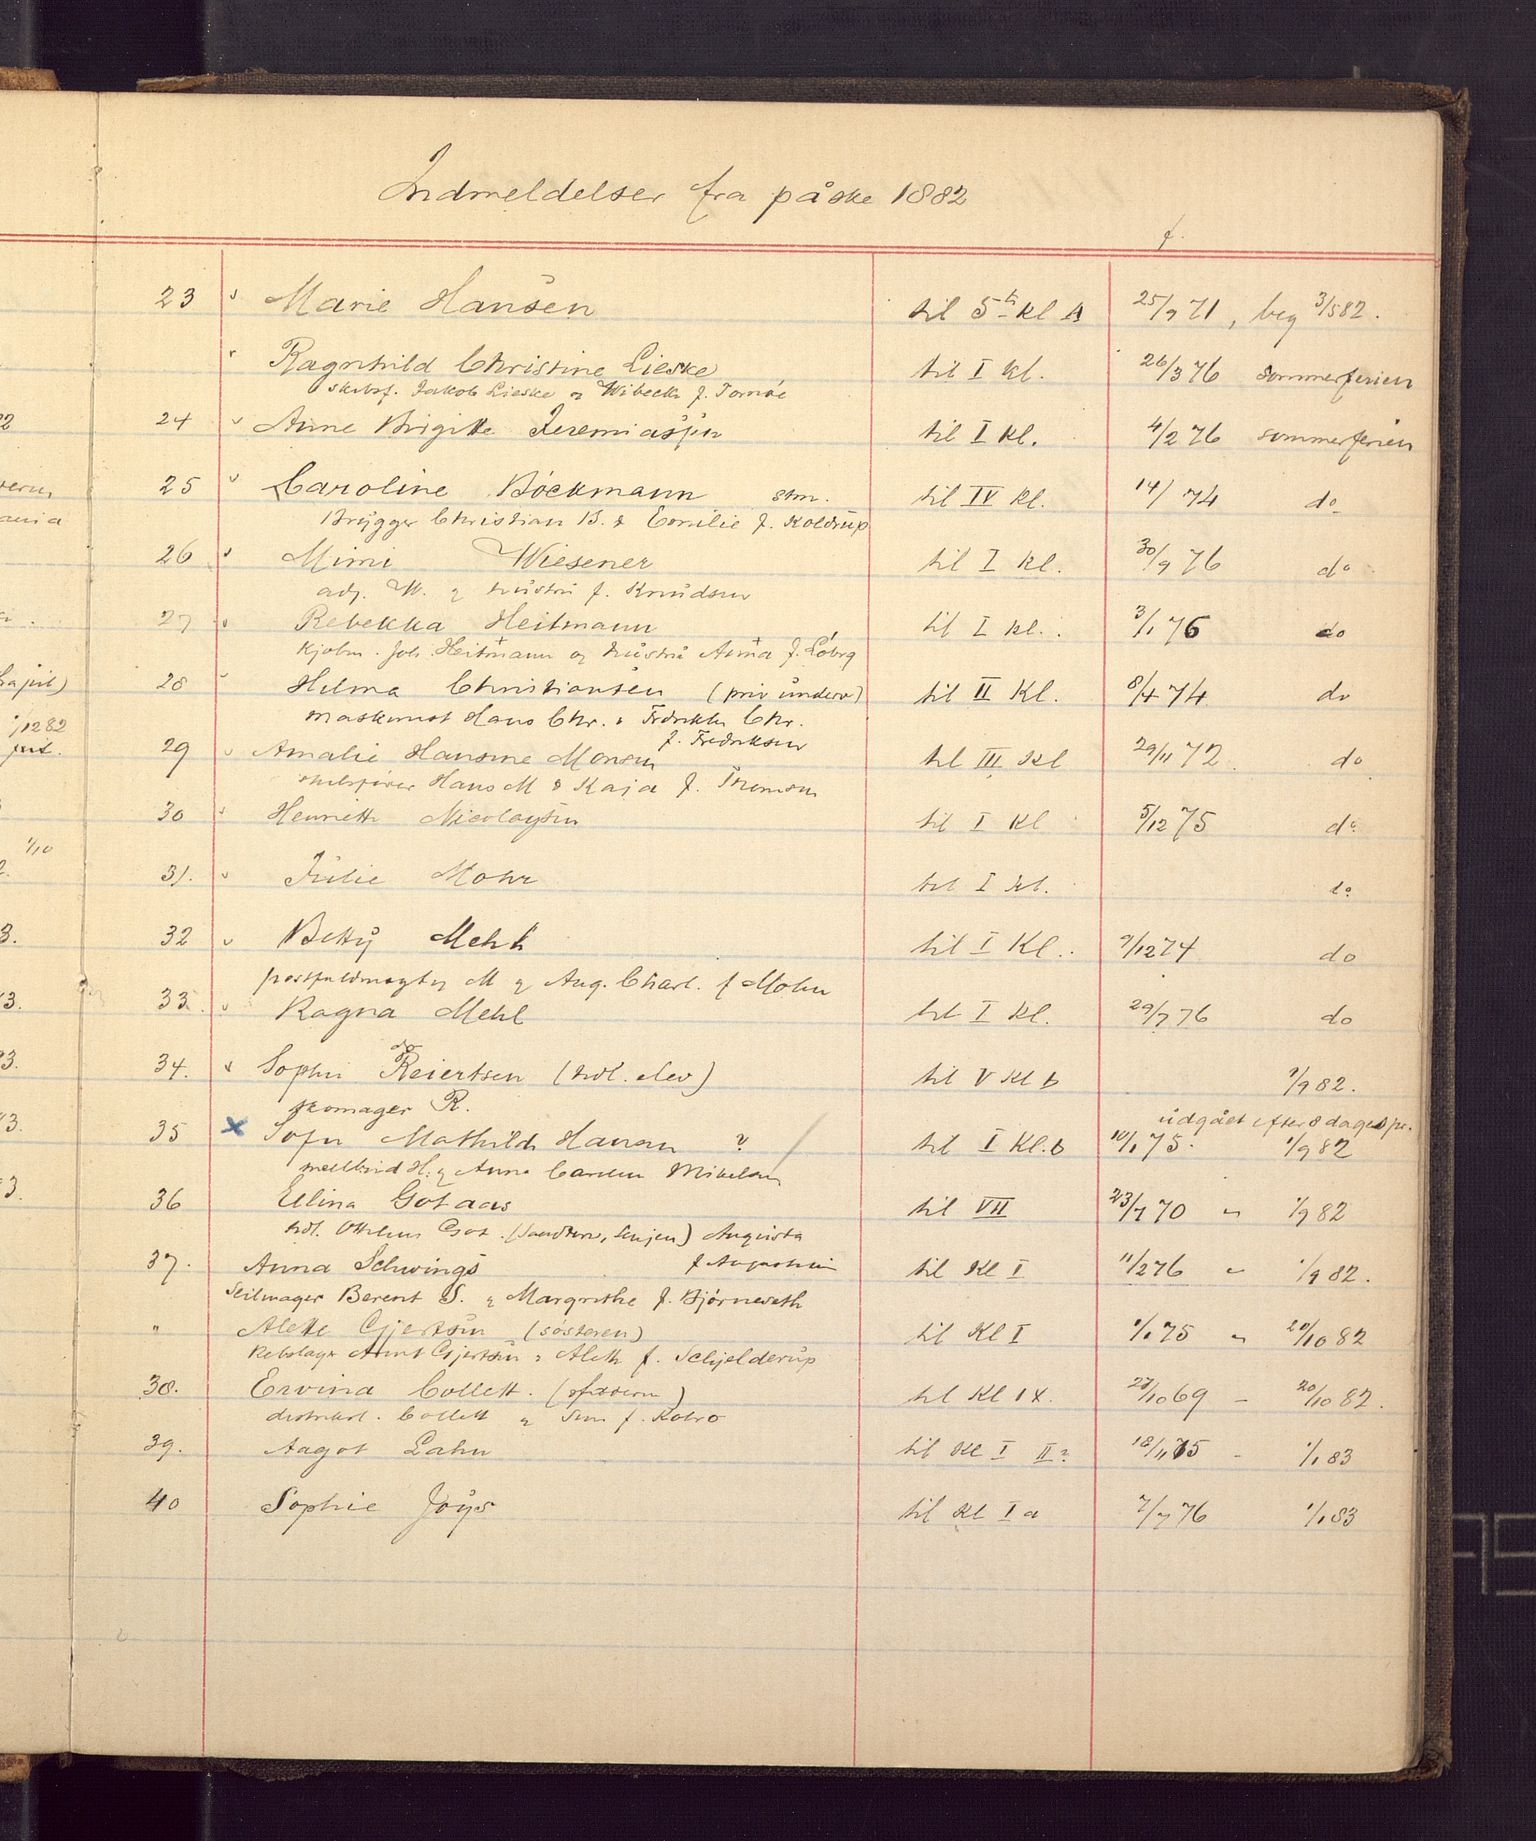 Indmeldelser fra påske 1882
f.
23 Marie Hansen til 5te Kl A 25/9 71, beg 3/5 82.
Ragnhild Christine Lieske til I Kl. 26/3 76 sommerferien
skibsf. Jakob Lieske og Wibecke f. Tomøe
24 Anne Birgitte Jeremiassen til I Kl. 4/2 76 sommerferien
25 Caroline Böckmann til IV Kl. 14/ 74 do
Brygger Christian B. & Emilie f. Koldrup
26 Mimi Wiesener til I Kl. 30/9 76 do
adj. W. & hustru f. Knudsen
27 Rebekka Heitmann til I Kl. 3/1 76 do
Kjøbm. Joh. Heitmann og hustru Anna f. Løberg
28 Hilma Christiansen (priv underv) til II Kl. 8/4 74 do
maskinist Hans Chr. & Fredrikke Chr.
f. Fredriksen
29 Amalie Hansine Monsen til III Kl 29/11 72 do
skibsfører Hans M & Kaja f. Thomsen
30 Henriette Nicolaysen til I Kl 5/12 75 do
31. Julie Mohr til I Kl. do
32 Betty Mehl til I Kl. 9/12 74 do
postfuldmægtig M & Aug. Charl. f Mohn
33. Ragna Mehl til I Kl. 29/7 76 do
do
34. Sophie Reiertsen (hdl. elev) til V Kl b 1/9 82.
skomager R.
udgået efter 8 dages
35 Sofie Mathilde Hansen ? til I Kl. b 10/1 75. 1/9 82
H. & Anna Mikelsen
36 Ellina Gotaas til VII 23/7 70 " 1/9 82
hdl. Got. Augusta
37. Anna Schwings til Kl I 11/2 76 " 1/9 82.
Seilmager Berent S. & Margrethe f. Bjørneseth
" Alette Gjertsen (søsteren) til Kl I 1/1 75 " 20/10 82
Rebslager Gjertsen & Aleth f. Schjelderup
38. Ervina Collett. til Kl IX. 28/10 69 - 20/10 82.
Collett &
39. Aagot Lahn til Kl I II? 18/11 75 - 1/1 83
40 Sophie Joys til Kl I a 7/7 76 1/1 83